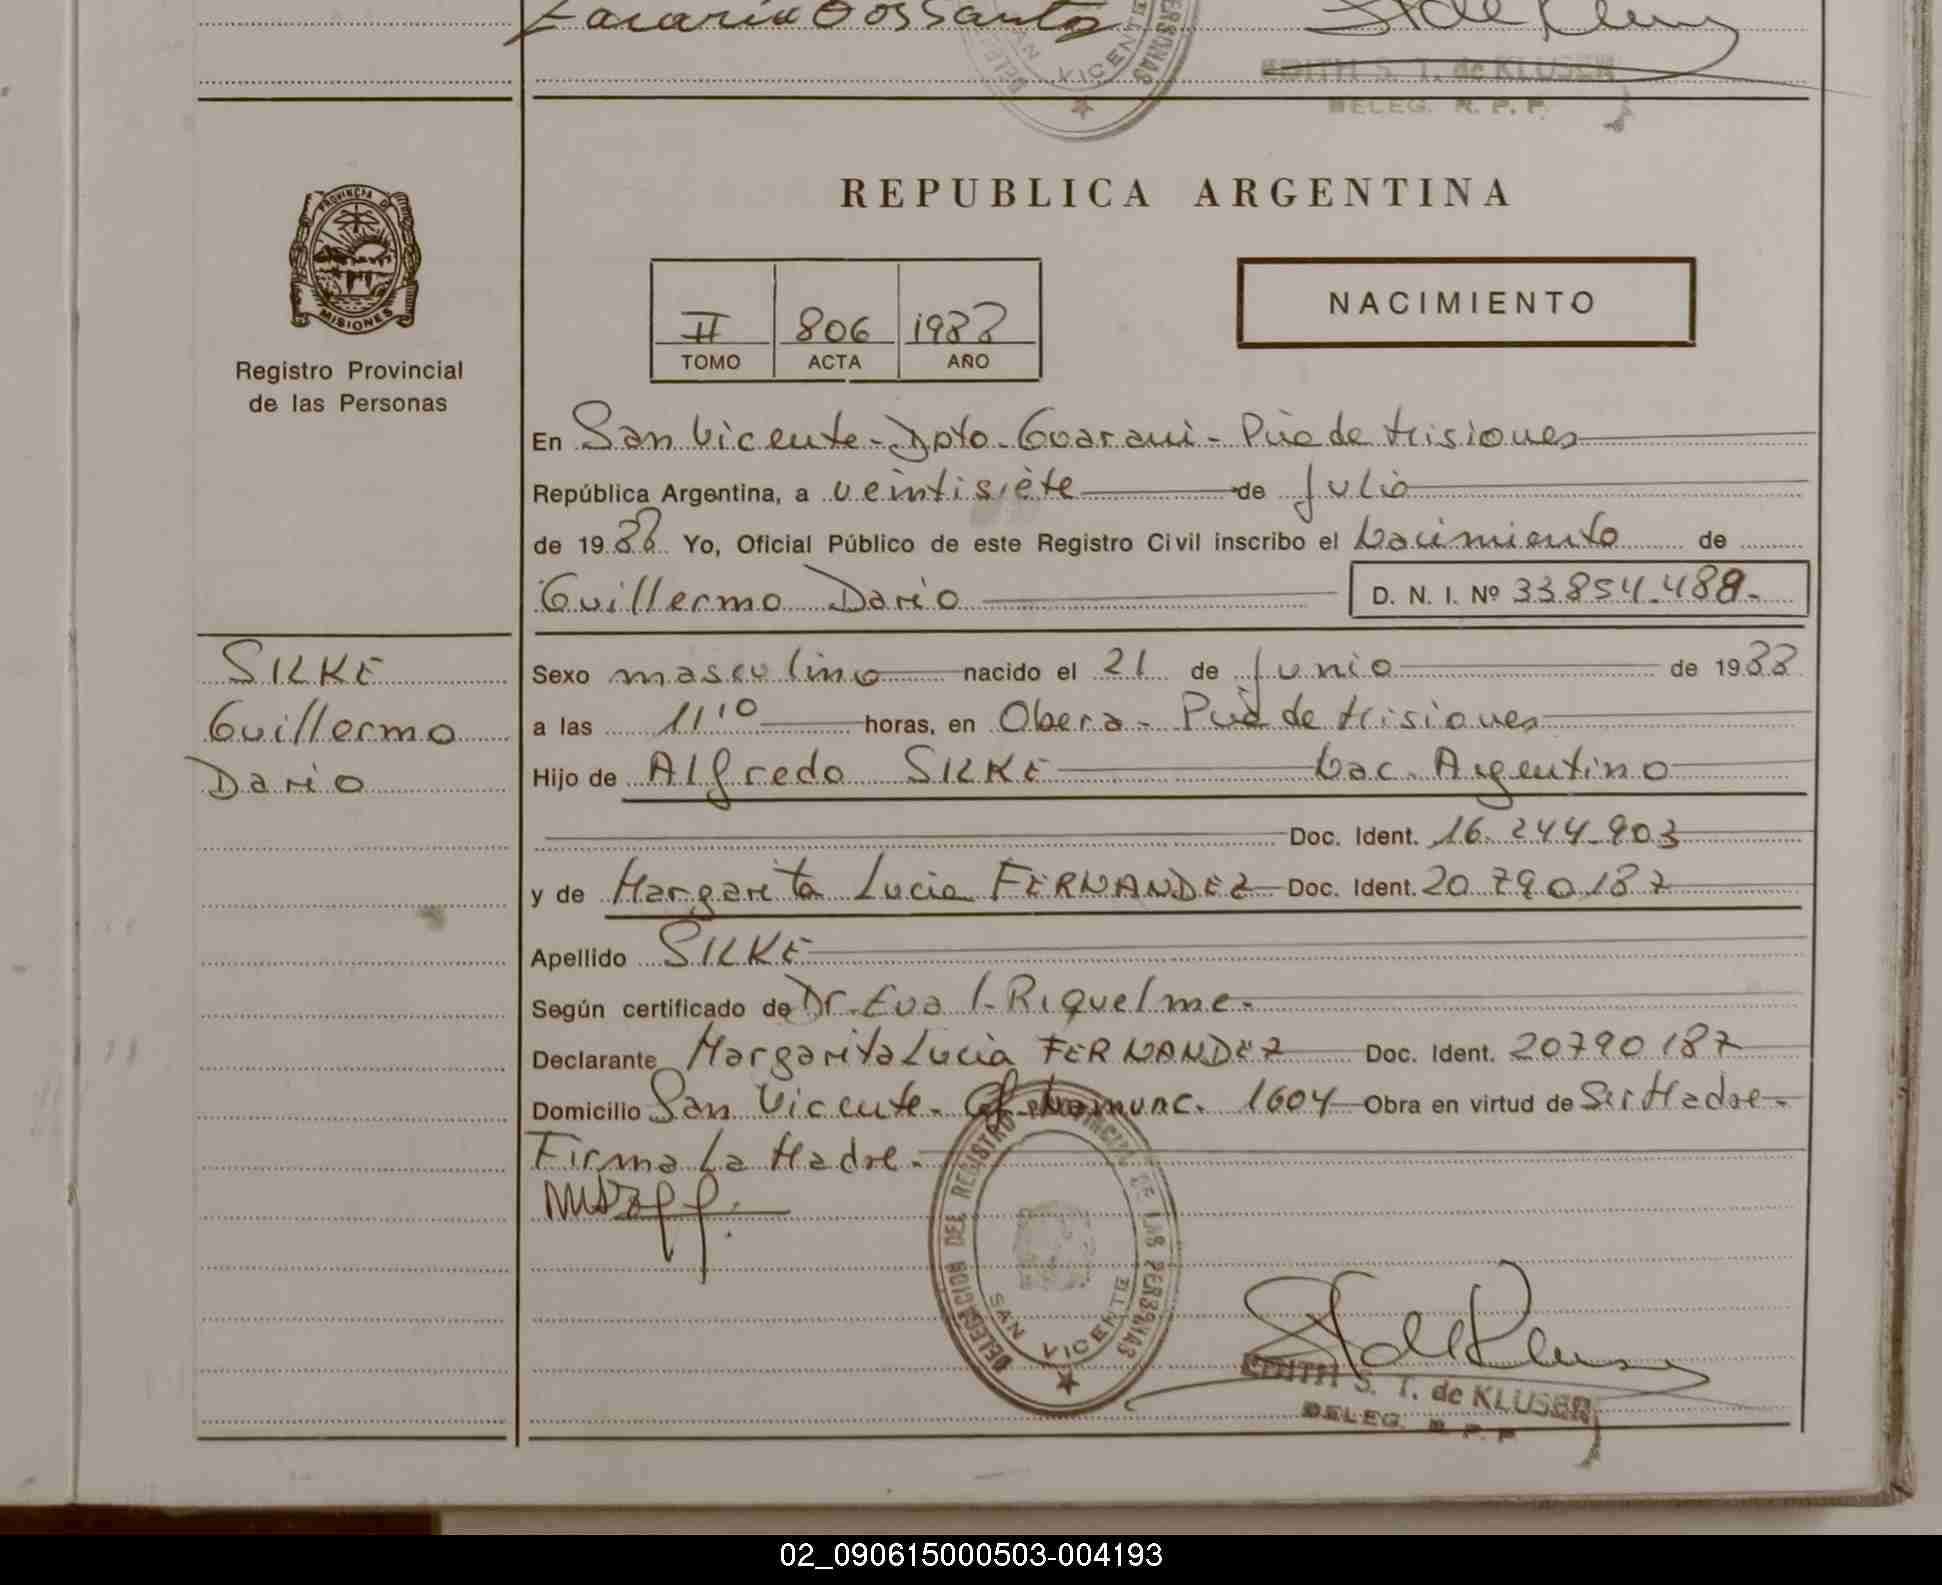 Zacarias Dos Santos
SAN VICENTE
PERSONAS
EDITH S. T. de KLUSER
DELEG. R. P. P.
PROVINCIA DE
MISIONES
Registro Provincial
de las Personas
REPUBLICA ARGENTINA
II 806 1988
TOMO ACTA AÑO
NACIMIENTO
En San Vicente - Dpto. Guarani - Pcia de Misiones
República Argentina, a veintisiete de Julio
de 1988 Yo, Oficial Público de este Registro Civil inscribo el Nacimiento de
Guillermo Dario D. N. I. Nº 33.854.488.-
SILKE
Guillermo
Dario
Sexo masculino nacido el 21 de Junio de 1988
a las 11'10 horas, en Obera - Pcia de Misiones
Hijo de Alfredo SILKE Nac. Argentino
Doc. Ident. 16.244.903
y de Margarita Lucia FERNANDEZ Doc. Ident. 20.790.187
Apellido SILKE
Según certificado de Dr. Eva I. Riquelme.
Declarante Margarita Lucia FERNANDEZ Doc. Ident. 20790187
Domicilio San Vicente. 1604 Obra en virtud de Ser Madre.
Firma La Madre.
DELEGACION DEL REGISTRO PROVINCIAL DE LAS PERSONAS
SAN VICENTE
EDITH S. T. de KLUSER
DELEG. R. P. P.
02_090615000503-004193